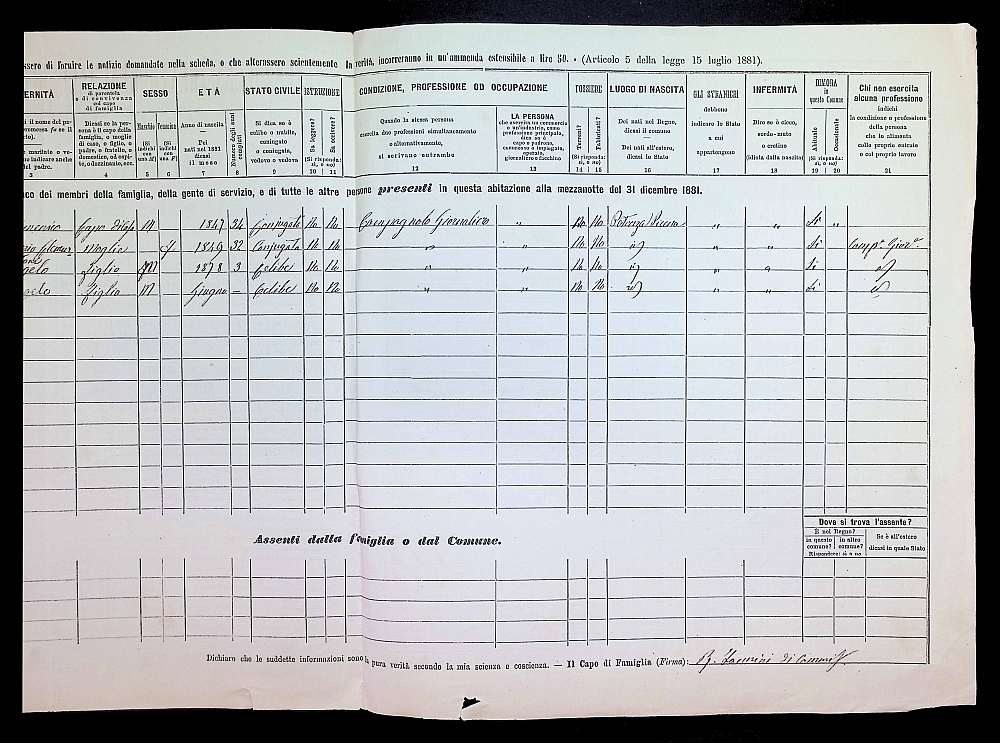 ssero di fornire le notizie domandate nella scheda, o che alterassero scientemente la verità, incorreranno in un'ammenda estensibile a lire 50. - (Articolo 5 della legge 15 luglio 1881).
ERNITÀ
RELAZIONE
di parentela
o di convivenza
col capo
di famiglia
SESSO
ETÀ
STATO CIVILE
ISTRUZIONE
CONDIZIONE, PROFESSIONE OD OCCUPAZIONE
POSSIEDE
LUOGO DI NASCITA
GLI STRANIERI
INFERMITÀ
DIMORA
in
questo Comune
Chi non esercita
alcuna professione
Dicasi se la per-
sona è il capo della
famiglia, o moglie
di esso, o figlio, o
padre, o fratello, o
domestico, od ospi-
te, o dozzinante, ecc.
Maschio
(Si indichi con una M)
Femmina
(Si indichi con una F)
Anno di nascita
—
Pei
nati nel 1881
dicasi
il mese
Numero degli anni compiuti
Si dica se è
celibe o nubile,
coniugato
o coniugata,
vedovo o vedova
Sa leggere?
Sa scrivere?
(Si risponda: sì, o no)
Quando la stessa persona
esercita due professioni simultaneamente
o alternativamente,
si scrivano entrambe
LA PERSONA
che esercita un commercio
o un'industria, come
professione principale,
dica se è
capo o padrone,
commesso o impiegato,
operaio,
giornaliero o facchino
Terreni?
Fabbricati?
(Si risponda: sì, o no)
Dei nati nel Regno,
dicasi il comune
—
Dei nati all'estero,
dicasi lo Stato
debbono
indicare lo Stato
a cui
appartengono
Dire se è cieco,
sordo-muto
o cretino
(idiota dalla nascita)
Abituale
Occasionale
(Si risponda: sì, o no)
indichi
la condizione o professione
della persona
che lo alimenta
col proprio entrate
o col proprio lavoro
3 4 5 6 7 8 9 10 11 12 13 14 15 16 17 18 19 20 21
nco dei membri della famiglia, della gente di servizio, e di tutte le altre persone presenti in questa abitazione alla mezzanotte del 31 dicembre 1881.
M 1847 34 Conjugato No No Campagnolo Giornaliero „ No No Potenza Picena „ „ Si „
Moglie f 1849 32 Conjugata No No „ „ No No id „ „ Si
figlio M 1878 3 Celibe No No „ „ No No id „ „ Si id
Figlio M Giugno — Celibe No No „ „ No No id „ „ Si id
Dove si trova l'assente?
È nel Regno?
in questo comune?
in altro comune?
Rispondere: sì o no
Se è all'estero
dicasi in quale Stato
Assenti dalla famiglia o dal Comune.
Dichiaro che le suddette informazioni sono la pura verità secondo la mia scienza e coscienza. — Il Capo di Famiglia (Firma):